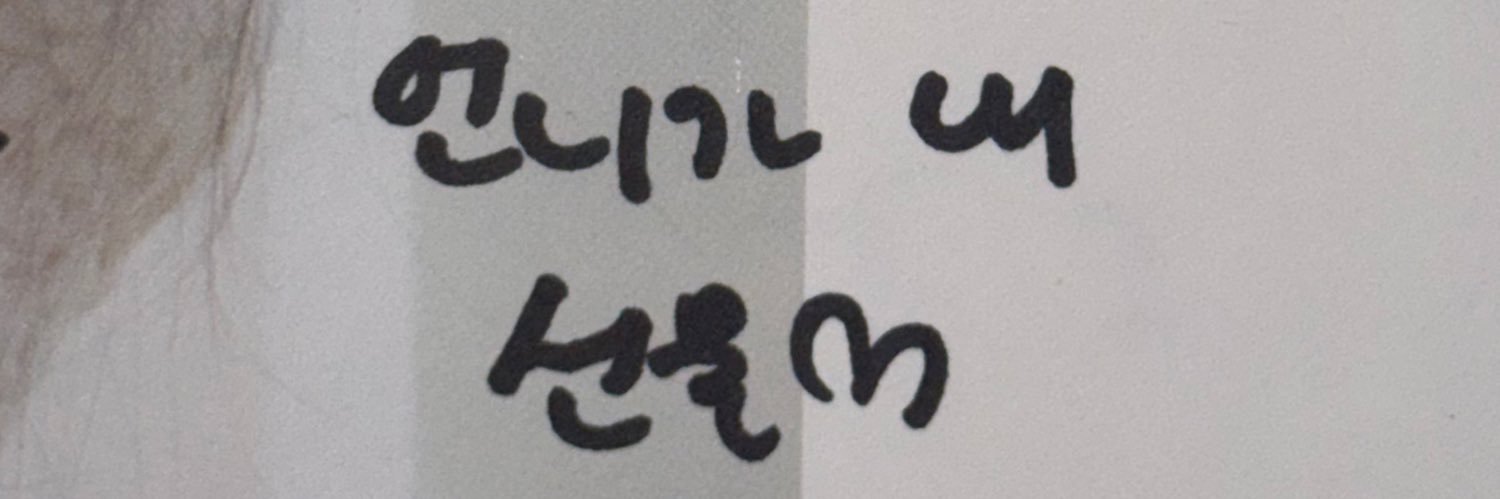 언니가 내
선물